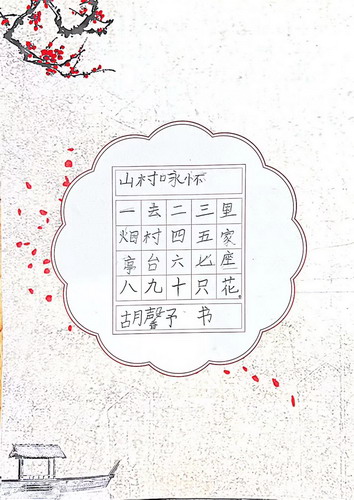 山村咏怀
一去二三里
烟村四五家
亭台六七座
八九十只花。
胡馨予 书